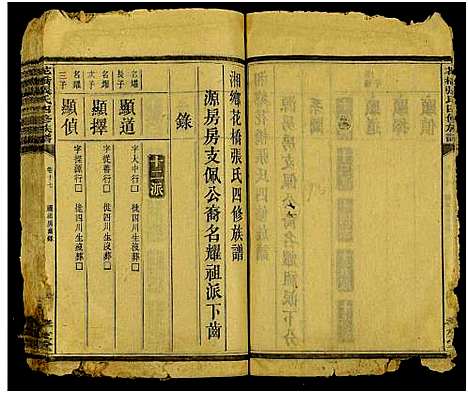 湘鄉花橋張氏四修族譜
源房房支佩公裔名耀祖派下齒
錄
十二派
名耀長子
顯道
字大中行
徙四川生沒葬
名耀次子
顯擇
字從善行
徙四川生沒葬
名耀三子
顯偵
字探源行
徙四川生沒葬
花橋張氏四修族譜
卷十七